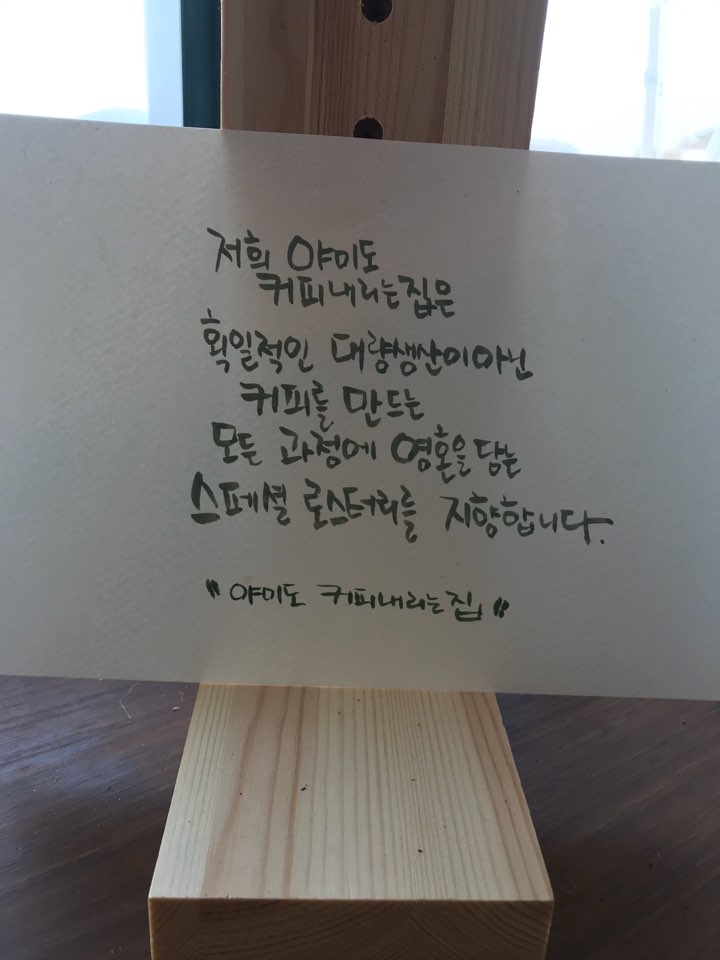 저희 야미도
커피내리는집은
획일적인 대량생산이아닌
커피를 만드는
모든 과정에 영혼을담는
스페셜 로스터리를 지향합니다.
"야미도 커피내리는집"